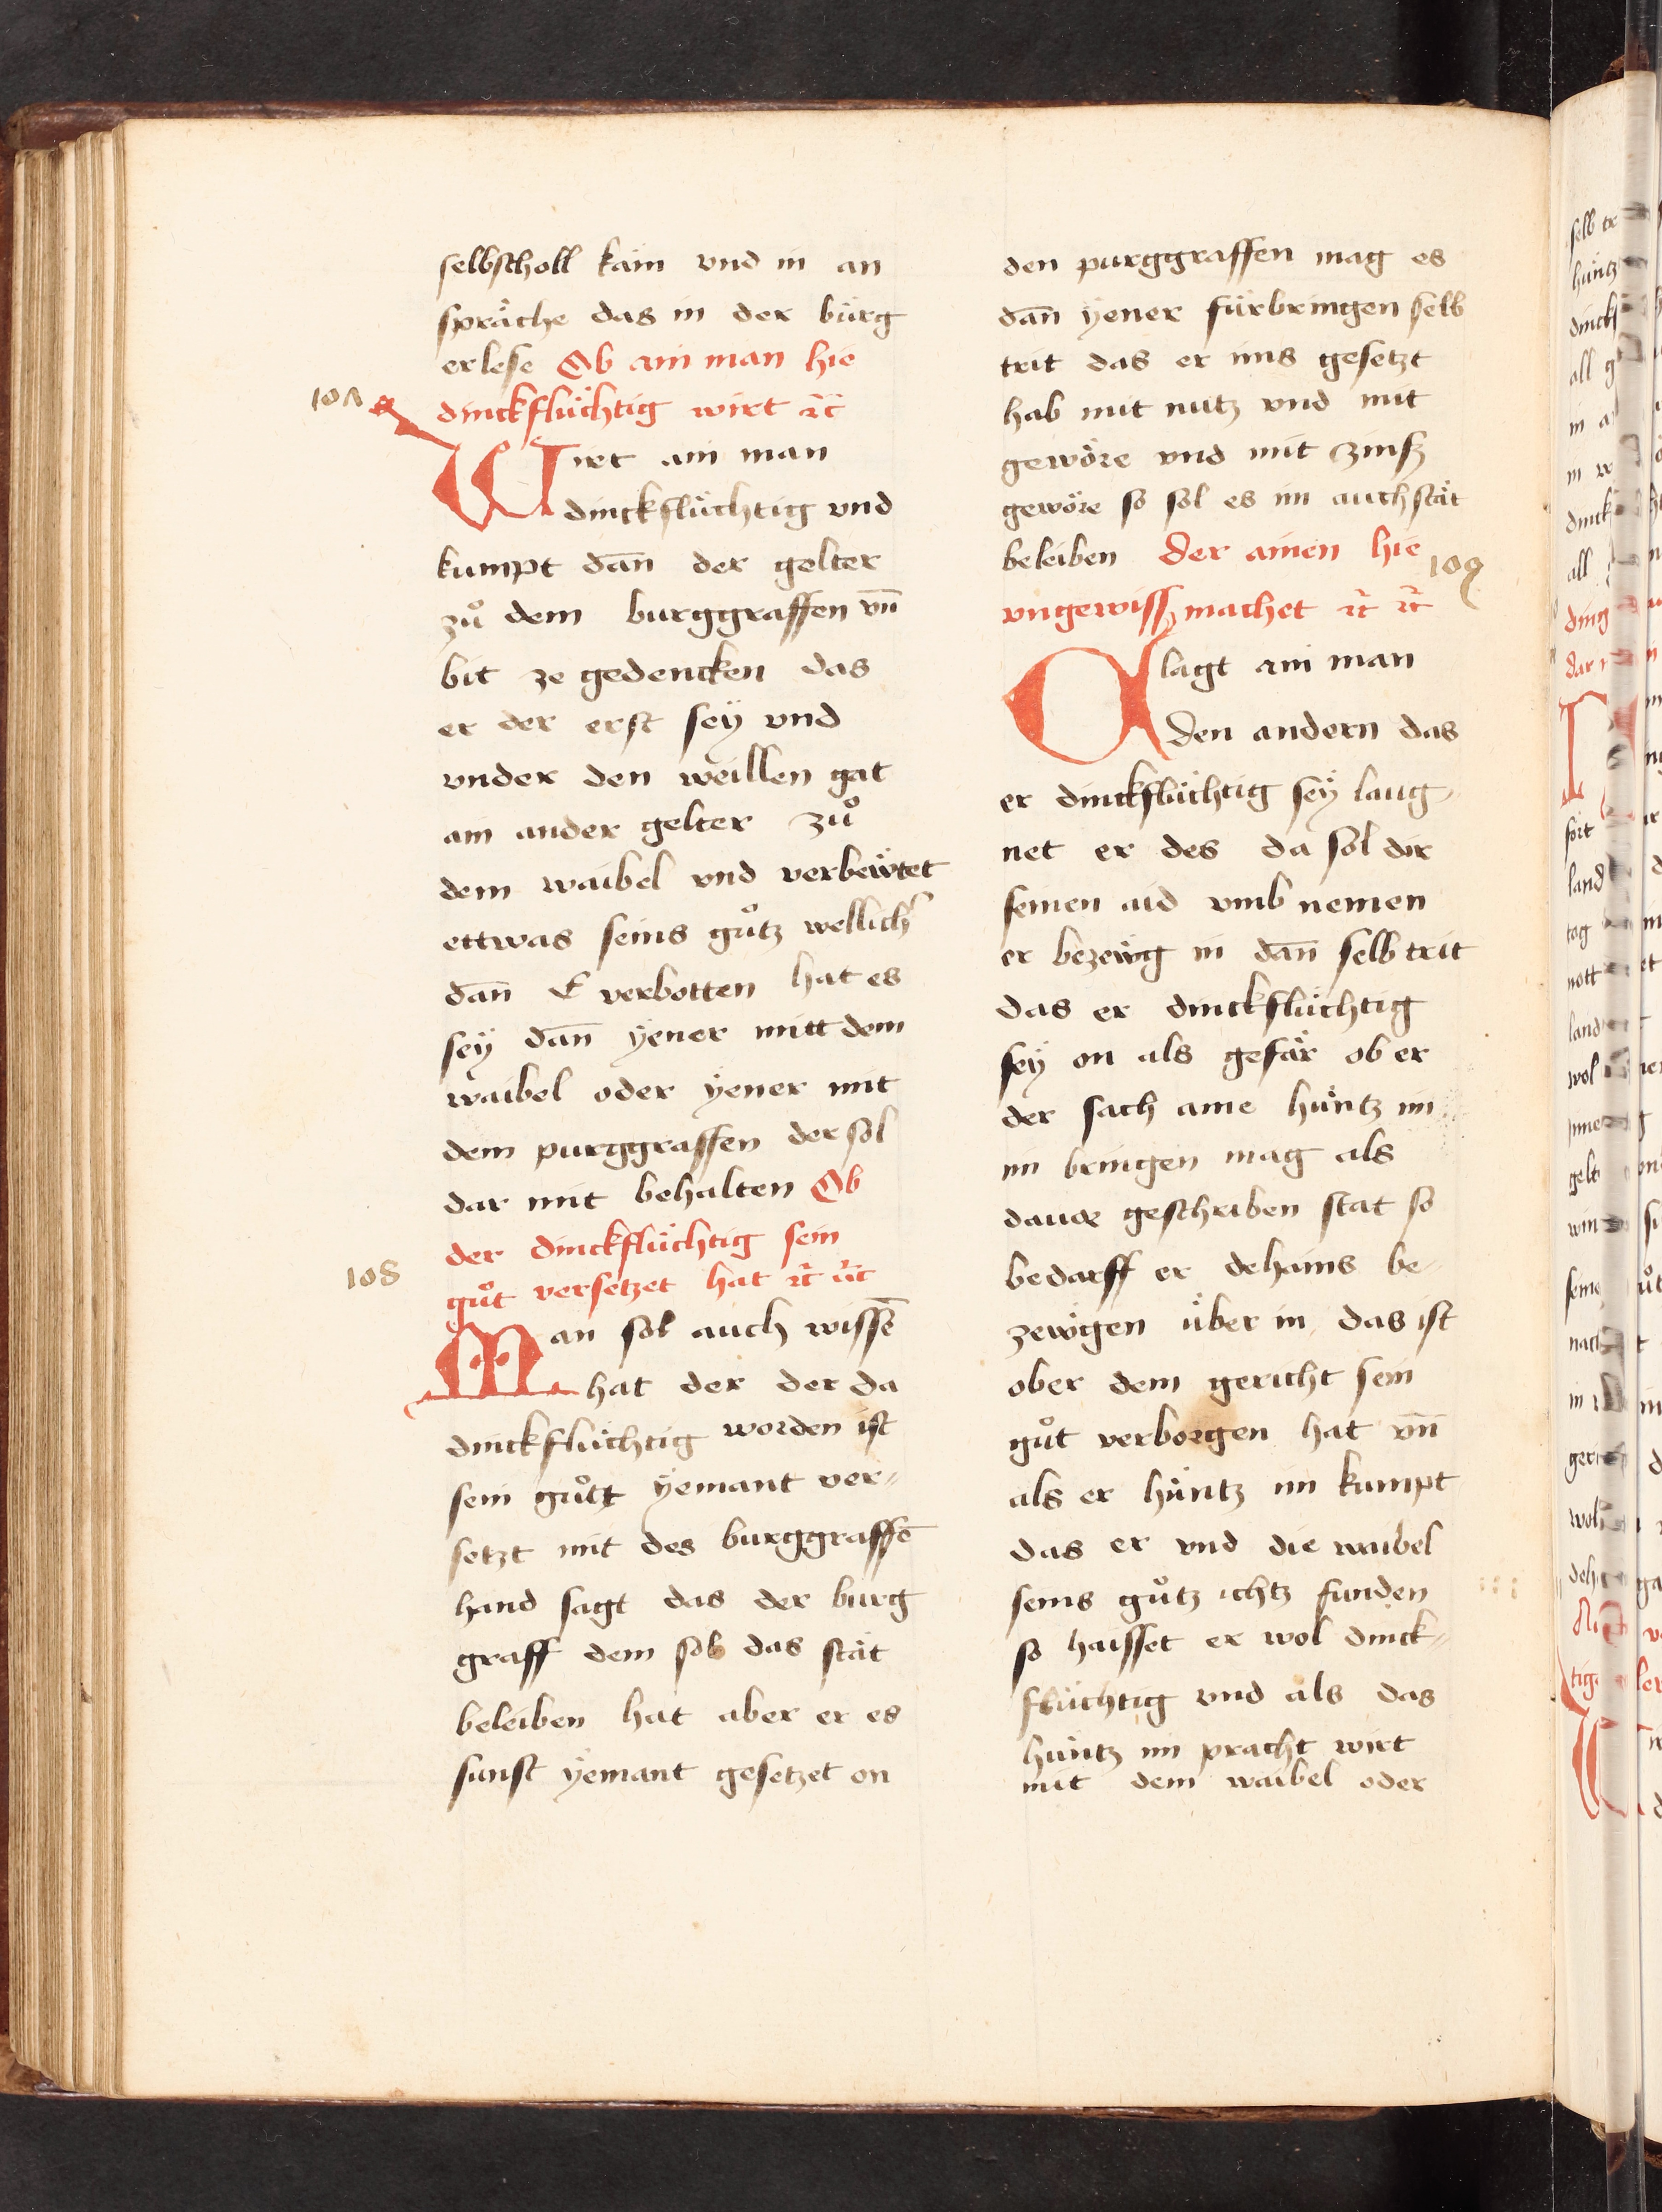 selbscholl käm vnd in an
spräche das in der bürg
erlese Ob ain man hie
107
dinckflüchtig wirt ꝛc̄
Wirt ain man
dinckflüchtig vnd
kumpt dan̄ der gelter
zů dem burggraffen vn̄
bit ze gedencken das
er der erst seÿ vnd
vnder den weillen gat
ain ander gelter zů
dem waibel vnd verbeẅtet
ettwas seins gůtz wellich̓
dan̄ E verbotten hat es
seÿ dan̄ ÿener mitt dem
waibel oder ÿener mit
dem purggraffen der sol
dar mit behalten Ob
der dinckflüchtig sein
108
gůt versetzet hat ꝛc̄ ꝛc̄
Man sol auch wissē
hat der der da
dinckflüchtig worden ist
sein gůtt ÿemant ver⸗
setzt mit des burggraffē
hand sagt das der burg
graff dem sol das stät
beleiben hat aber er es
sunst ÿemant gesetzet on
den purggraffen mag es
dan̄ ÿener fürbringen selb
trit das er ims gesetzt
hab mit nutz vnd mit
gewöre vnd mit zinsz
gewöre so sol es im auch stät
beleiben Der ainen hie
109
vngewisß machet ꝛc̄ ꝛc̄
Clagt ain man
den andern das
er dinckflüchtig seÿ laug⸗
net er des da sol dir
seinen aid vmb nemen
er bezeẅg in dan̄ selb trit
das er dinckflüchtig
seÿ on als gefär ob er
der sach aine hüntz im
im bringen mag als
dauor geschriben stat so
bedarff er dehains be⸗
zeẅgen über in das ist
ober dem gericht sein
gůt verborgen hat vn̄
als er hüntz im kumpt
das er vnd die waibel
seins gůtz ichtz funden
so haisset er wol dinck⸗
flüchtig vnd als das
hüntz im pracht wirt
mit dem waibel oder